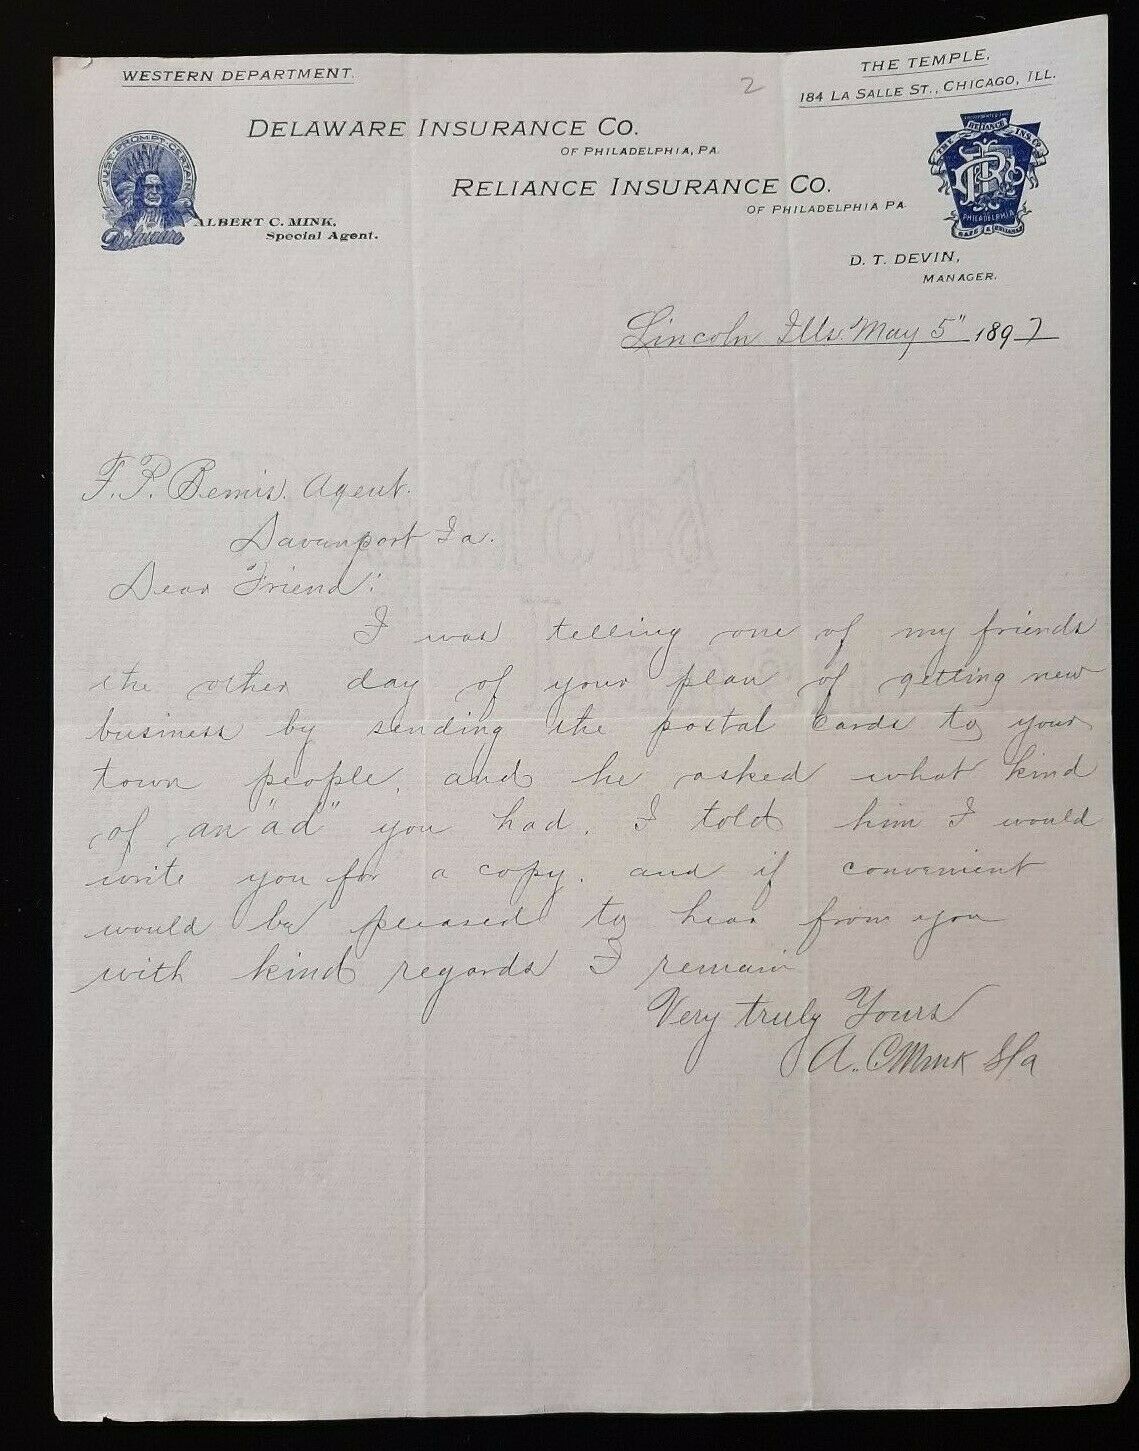 WESTERN DEPARTMENT.
2
THE TEMPLE,
184 LA SALLE ST., CHICAGO, ILL.
DELAWARE INSURANCE CO.
OF PHILADELPHIA, PA.
RELIANCE INSURANCE CO.
OF PHILADELPHIA PA.
JUST PROMPT CERTAIN
Delaware
ALBERT C. MINK,
Special Agent.
THE RELIANCE INS. CO.
PHILADELPHIA
D. T. DEVIN,
MANAGER.
Lincoln Ills. May 5" 1897
F. P. Bemis. Agent.
Davenport Ia.
Dear Friend:
I was telling one of my friends
the other day of your plan of getting new
business by sending the postal cards to your
town people, and he asked what kind
of an "ad" you had. I told him I would
write you for a copy. and if convenient
would be pleased to hear from you
with kind regards I remain
Very truly Yours
A. C. Mink